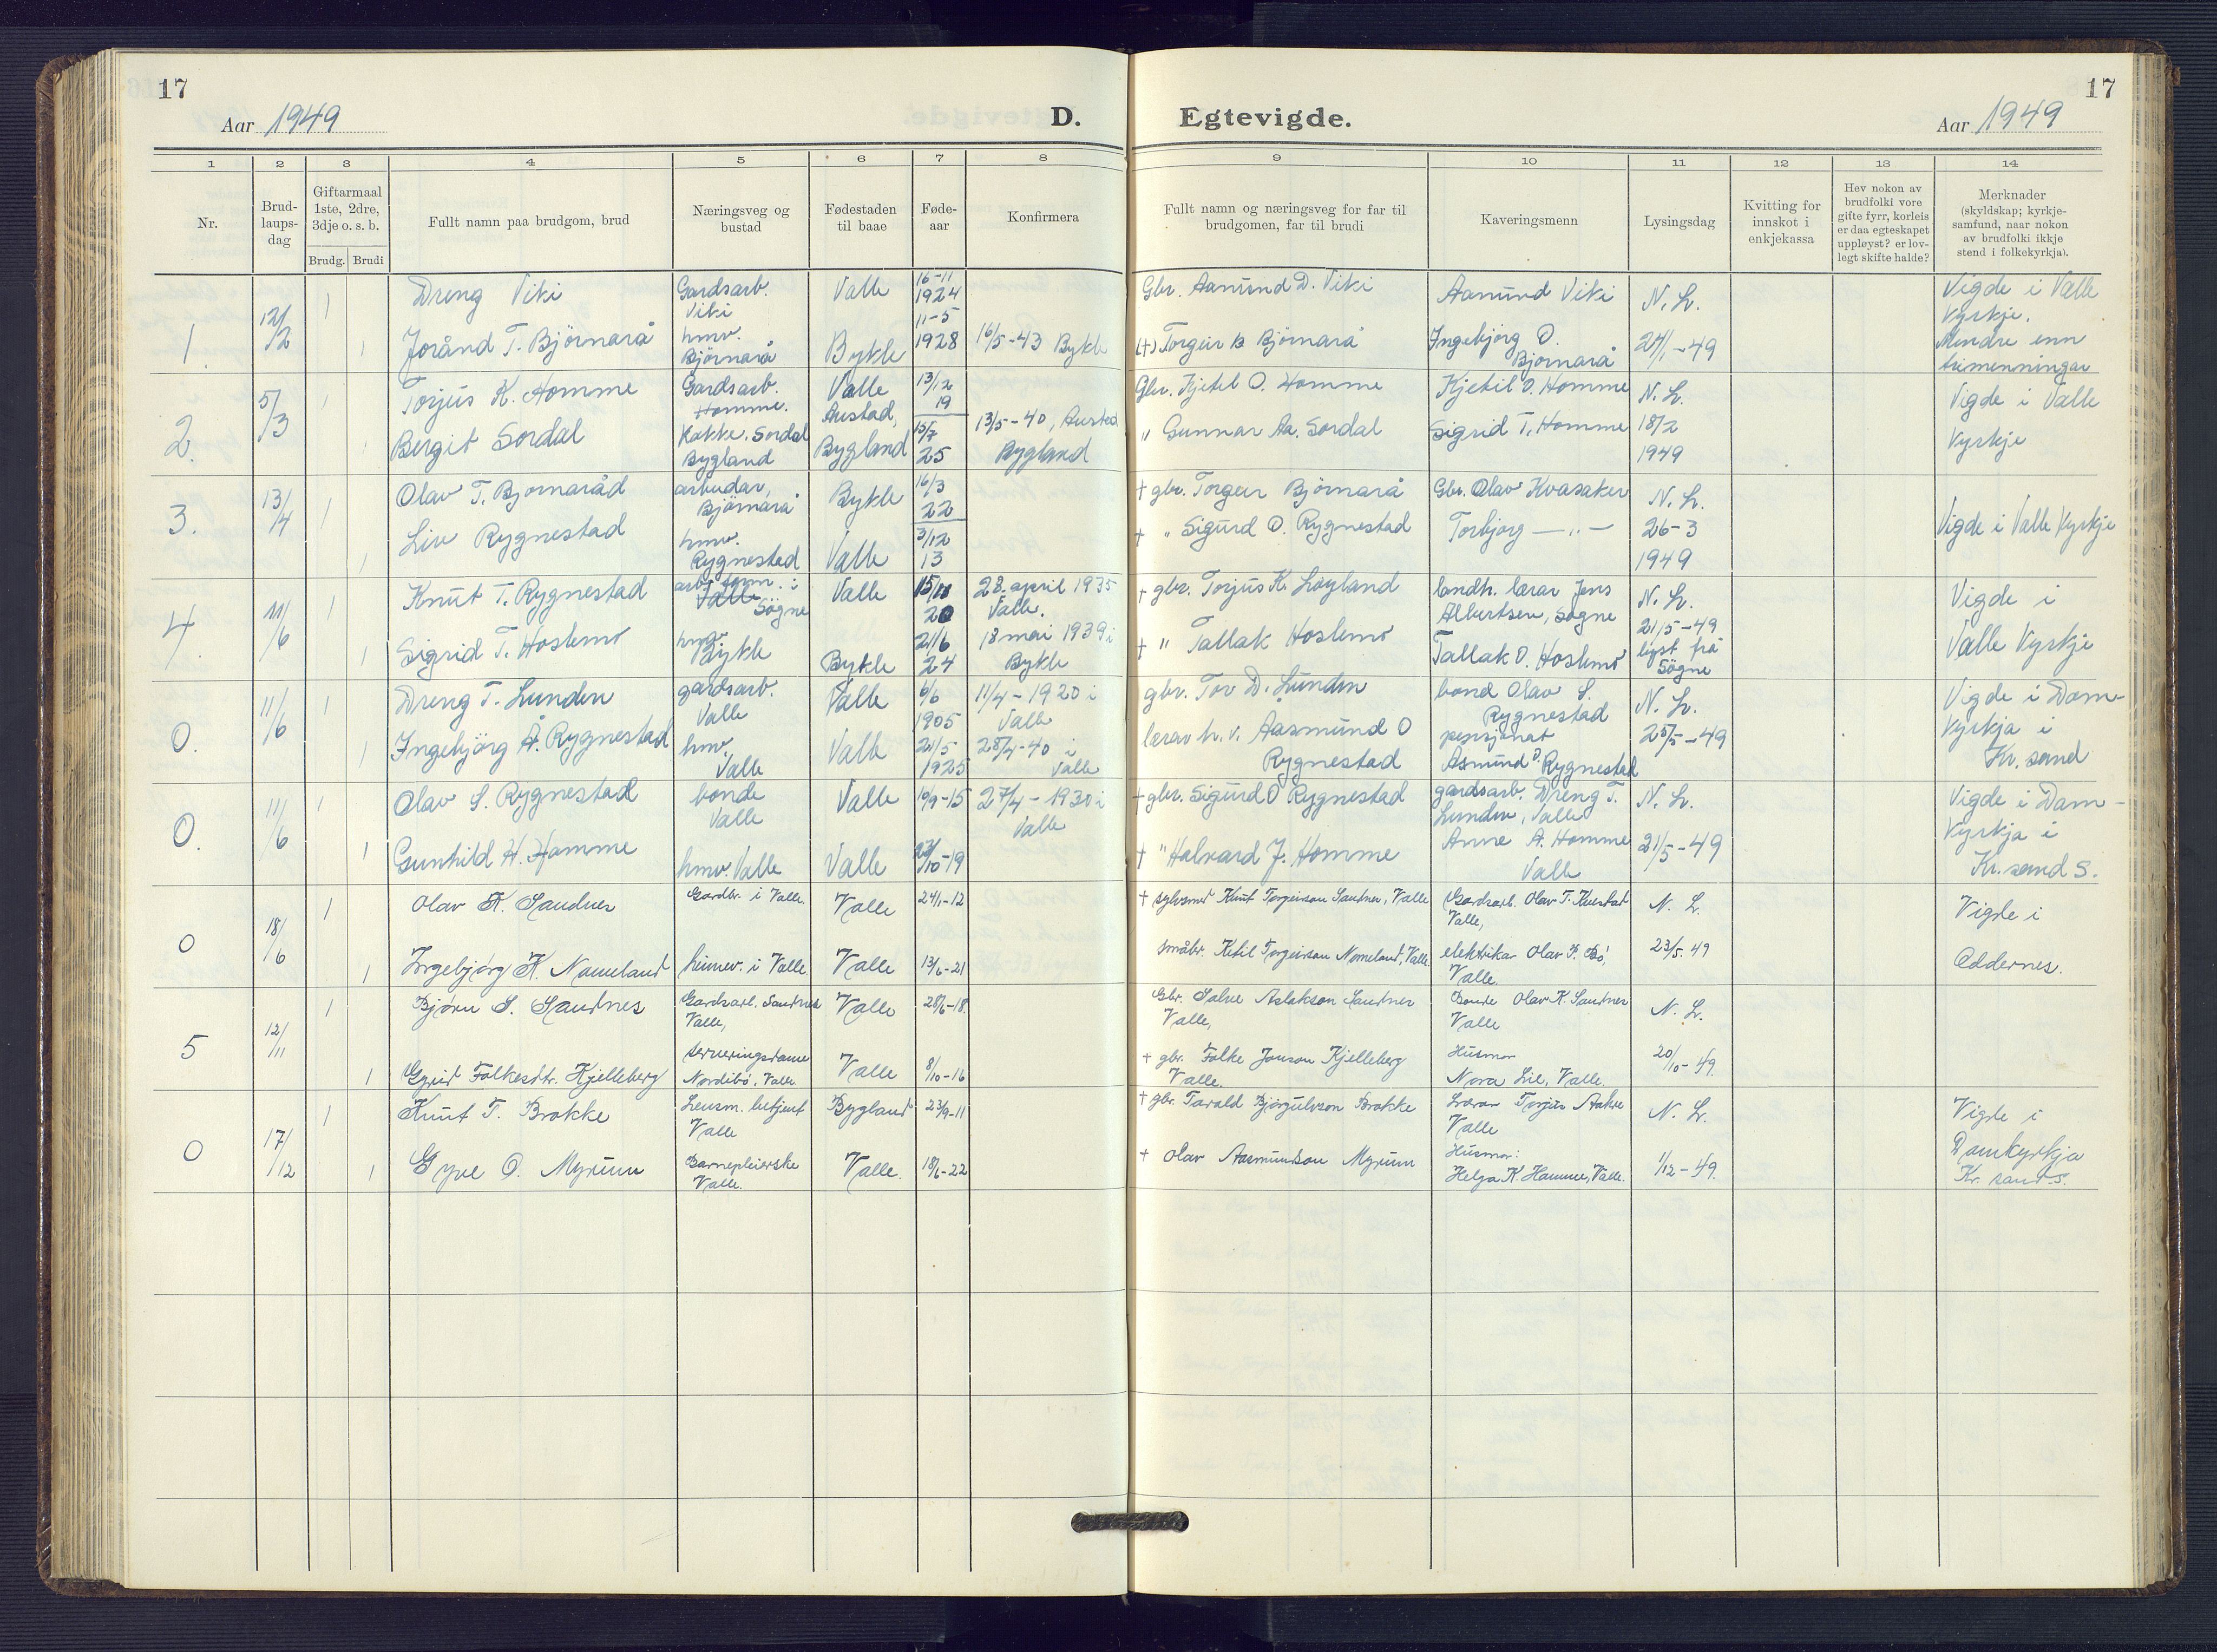 17
Aar 1949
D.
Egtevigde.
17
Aar 1949
1 2 3 4 5 6 7 8 9 10 11 12 13 14
Nr.
Brud-
laups-
dag
Giftarmaal
1ste, 2dre,
3dje o. s. b.
Brudg. Brudi
Fullt namn paa brudgom, brud
Næringsveg og
bustad
Fødestaden
til baae
Føde-
aar
Konfirmera
Fullt namn og næringsveg for far til
brudgomen, far til brudi
Kaveringsmenn
Lysingsdag
Kvitting for
innskot i
enkjekassa
Hev nokon av
brudfolki vore
gifte fyrr, korleis
er daa egteskapet
uppløyst? er lov-
legt skifte halde?
Merknader
(skyldskap; kyrkje-
samfund, naar nokon
av brudfolki ikkje
stend i folkekyrkja).
1.
12/2
1
Dreng Viki
Gardsarb.
Viki
Valle
16-11
1924
Gbr. Aamund D. Viki
Aamund Viki
N. L.
Vigde i Valle
Kyrkje.
1
Joránd T. Björnarå
hmv.
Björnarå
Bykle
11-5
1928
16/5-43 Bykle
(†) Torgeir B Björnarå
Ingebjörg O.
Björnarå
24/1-49
Mindre enn
trimenningar
2.
5/3
1
Torjus K. Homme
Gardsarb.
Homme.
Valle
13/12
19
Gbr. Kjetel O. Homme
Kjetil O. Homme
N. L.
Vigde i Valle
Kyrkje
1
Bergit Sordal
Kokke. Sordal
Bygland
Austad,
Bygland
15/7
25
13/5-40, Austad
Bygland
" Gunnar Aa. Sordal
Sigrid T. Homme
18/2
1949
3.
13/4
1
Olav T. Bjornaråd
arbeidar,
Björnarå
Bykle
16/3
22
† gbr. Torgeir Björnarå
Gbr. Olav Kvasaker
N. L.
Vigde i Valle Kyrkje
1
Liv Rygnestad
hmv.
Rygnestad
Valle
3/12
13
† " Sigurd O. Rygnestad
Torbjörg —„—
26-3
1949
4.
11/6
1
Knut T. Rygnestad
arb. form. i
Valle Sögne
Valle
15/11
20
28. april 1935
Valle.
† gbr. Torjus K. Löyland
landh. lærar Jens
Albertsen, Sögne
N. L.
Vigde i
Valle Kyrkje
1
Sigrid T. Hoslemo
hmv
Bykle
Bykle
21/6
24
18 mai 1939 i
Bykle
† " Tallak Hoslemo
Tallak O. Hoslemo
21/5-49
lyst frå
Sögne
0.
11/6
1
Dreng T. Lunden
gardsarb.
Valle
Valle
6/6
1905
11/4-1920 i
Valle
gbr. Tor D. Lunden
bond Olav S.
Rygnestad
N. L.
Vigde i Dom-
Kyrkja i
Kr. sand
1
Ingebjörg Å. Rygnestad
hmv.
Valle
Valle
21/5
1925
28/4-40 i
Valle
lærar h. v. Aasmund O
Rygnestad
pensjonat
Asmund O. Rygnestad
25/5-49
0.
11/6
1
Olav S. Rygnestad
bonde
Valle
Valle
10/9-15
27/4-1930 i
Valle
† gbr. Sigurd O Rygnestad
gardsarb. Dreng T.
Lunden, Valle
N. L.
Vigde i Dom-
Kyrkja i
Kr. sand S.
1
Gunhild H. Homme
hmv. Valle
Valle
23/10-19
† " Halvard J. Homme
Anne A. Homme
Valle
21/5-49
0
18/6
1
Olav K. Sandnes
Gardbr. i Valle.
Valle
24/1-12
† sylvsmed Knut Torgeirson Sandnes, Valle
Gardsarb. Olav T. Kvestad
Valle,
N. L.
Vigde i
Oddernes.
1
Ingebjörg K. Nomeland
heimev. i Valle
Valle
13/6-21
småbr. Ketil Torgeirson Nomeland, Valle.
elektrikar Olav K. Bö,
Valle.
23/5.49
5
12/11
1
Bjørn S. Sandnes
Gardsarb. Sandnes
Valle,
Valle
28/6-18.
Gbr. Salve Aslakson Sandnes
Valle,
Bonde Olav K. Sandnes
Valle
N. L.
1
Gyrid Folkesdtr. Kjelleberg
serveringsdame
Nordibö, Valle.
Valle
8/10-16
† gbr. Folke Jonson Kjelleberg
Valle.
Husmor
Nora Lie, Valle.
20/10-49.
0
17/12
1
Knut T. Brokke
Lensm. betjent
Valle
Bygland
23/9-11
† gbr. Tarald Björgulvson Brokke
Lærar Torjus Aakre
Valle
N. L.
Vigde i
Domkyrkja
Kr. sand S.
1
Gyve O. Myrum
Barnepleierske
Valle.
Valle.
18/6-22
† Olav Aasmundson Myrum
Husmor:
Helga K. Homme, Valle.
1/12-49.